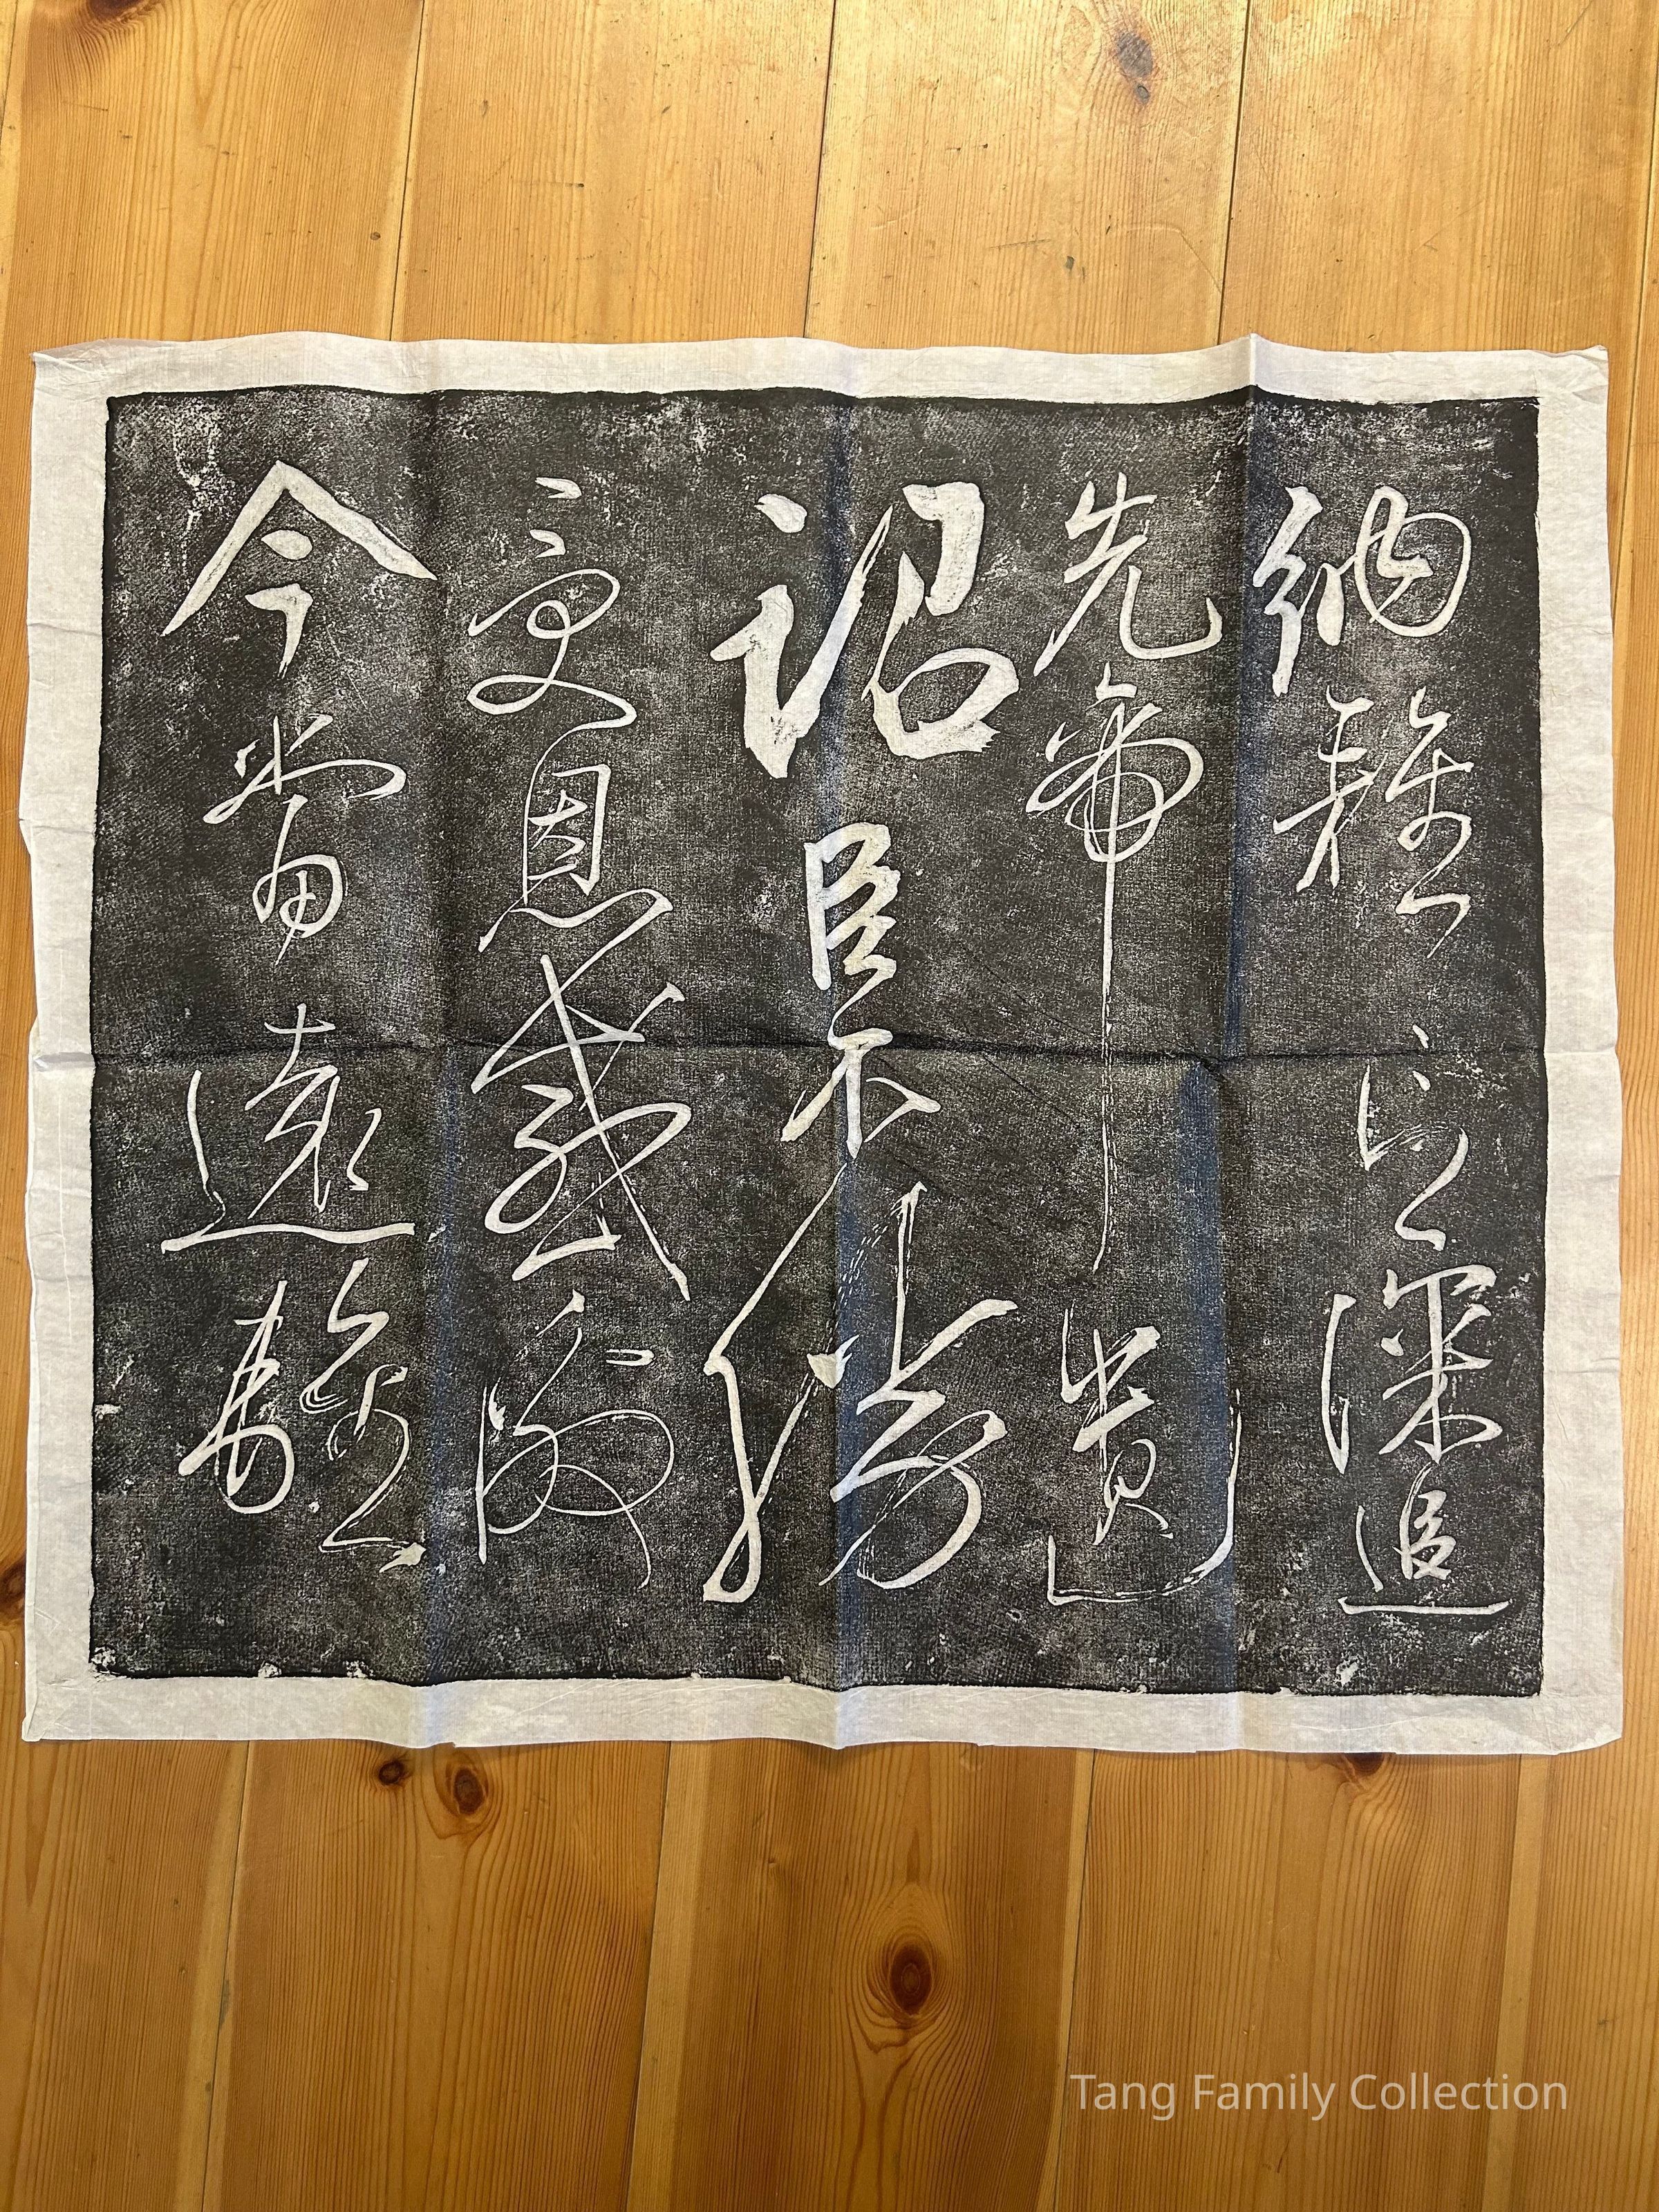 納雅言深追
先帝遺
詔臣不勝
受恩感激
今當遠離
Tang Family Collection